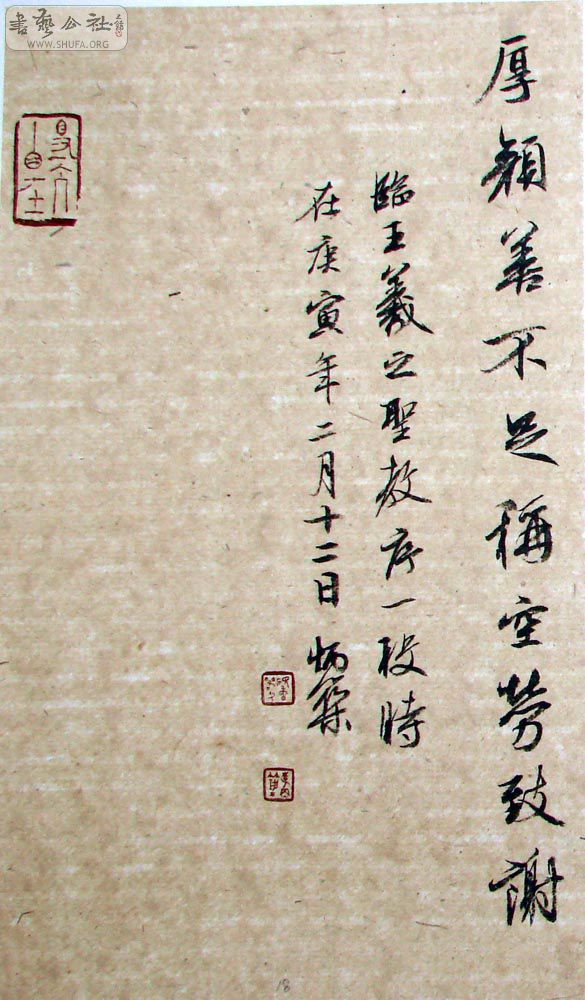 厚顏善不足稱空勞致謝
臨王羲之聖教序一段時
在庚寅年二月十二日 炳
書藝公社
WWW.SHUFA.ORG
18